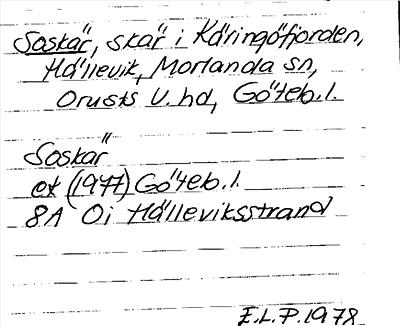 Soskär, skär i Käringöfjorden,
Hällevik, Morlanda sn,
Orusts V. hd, Göteb. l.
Soskär
ek (1977) Göteb. l.
8A 0i Hälleviksstrand
E.L.P. 1978